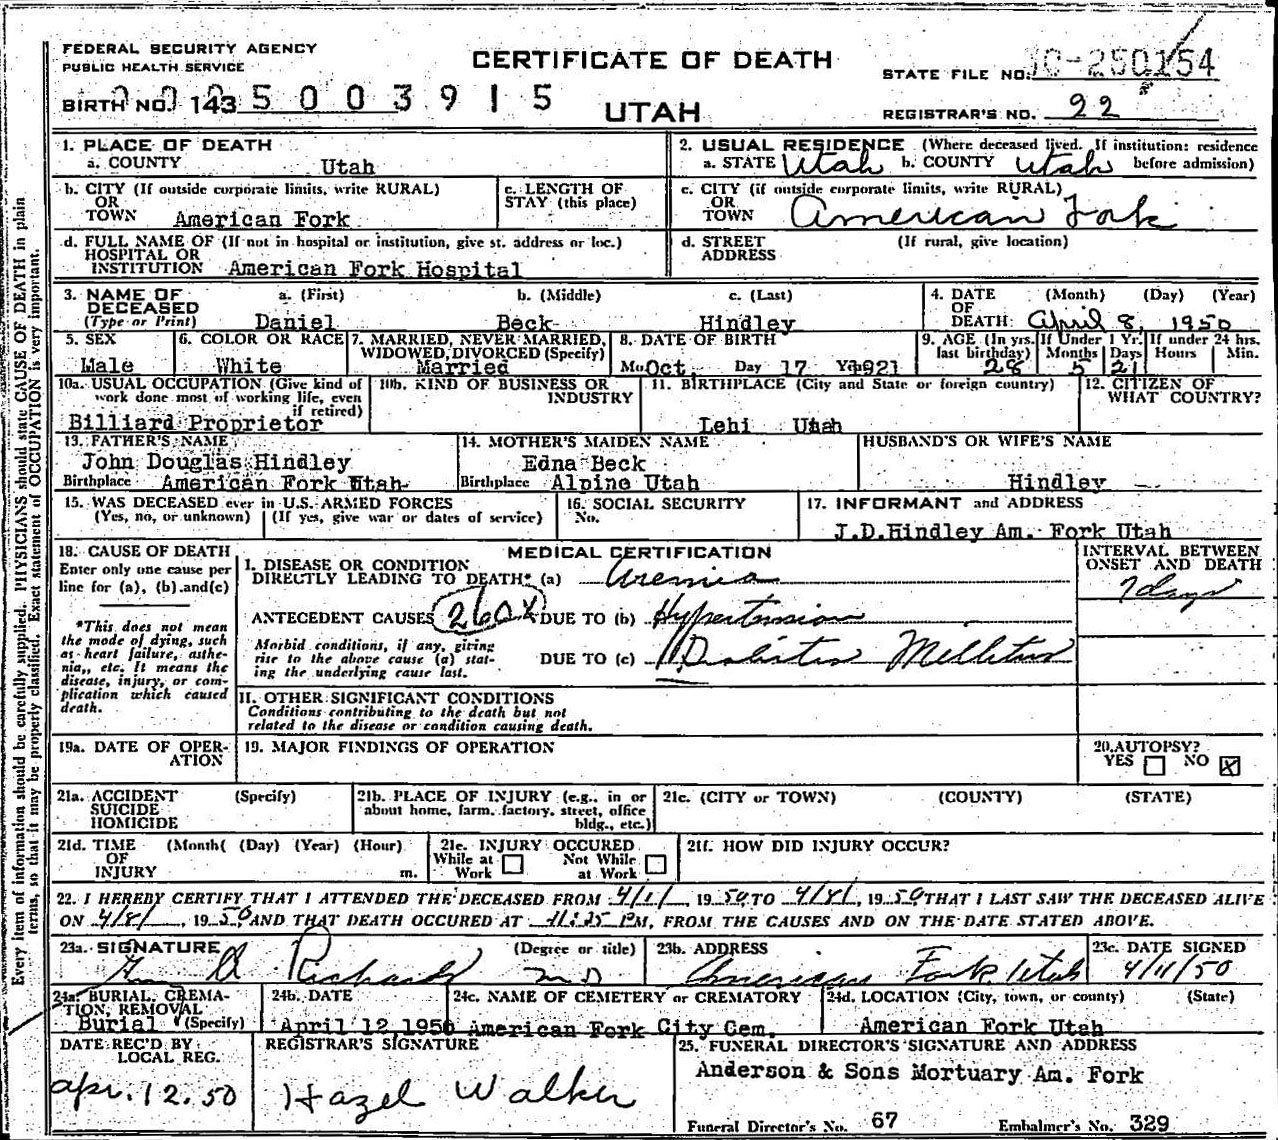 FEDERAL SECURITY AGENCY
PUBLIC HEALTH SERVICE
CERTIFICATE OF DEATH
UTAH
STATE FILE NO. 50-250154
BIRTH NO. 143 5 0 0 3 9 1 5
REGISTRAR'S NO. 22
Every item of information should be carefully supplied. PHYSICIANS should state CAUSE OF DEATH in plain
terms, so that it may be properly classified. Exact statement of OCCUPATION is very important.
1. PLACE OF DEATH
a. COUNTY Utah
2. USUAL RESIDENCE (Where deceased lived. If institution: residence
a. STATE Utah b. COUNTY Utah before admission)
b. CITY (If outside corporate limits, write RURAL)
OR
TOWN American Fork
c. LENGTH OF
STAY (this place)
c. CITY (if outside corporate limits, write RURAL)
OR
TOWN American Fork
d. FULL NAME OF (If not in hospital or institution, give st. address or loc.)
HOSPITAL OR
INSTITUTION American Fork Hospital
d. STREET (If rural, give location)
ADDRESS
3. NAME OF DECEASED a. (First) b. (Middle) c. (Last)
(Type or Print) Daniel Beck Hindley
4. DATE (Month) (Day) (Year)
OF
DEATH: April 8, 1950
5. SEX
Male
6. COLOR OR RACE
White
7. MARRIED, NEVER MARRIED,
WIDOWED, DIVORCED (Specify)
Married
8. DATE OF BIRTH
Mo Oct. Day 17 Yr 1921
9. AGE (In yrs. last birthday) If Under 1 Yr. If under 24 hrs.
Months Days Hours Min.
28 5 21
10a. USUAL OCCUPATION (Give kind of
work done most of working life, even
if retired)
Billiard Proprietor
10b. KIND OF BUSINESS OR
INDUSTRY
11. BIRTHPLACE (City and State or foreign country)
Lehi Utah
12. CITIZEN OF
WHAT COUNTRY?
13. FATHER'S NAME
John Douglas Hindley
Birthplace American Fork Utah
14. MOTHER'S MAIDEN NAME
Edna Beck
Birthplace Alpine Utah
HUSBAND'S OR WIFE'S NAME
Hindley
15. WAS DECEASED ever in U.S. ARMED FORCES
(Yes, no, or unknown) (If yes, give war or dates of service)
16. SOCIAL SECURITY
No.
17. INFORMANT and ADDRESS
J.D.Hindley Am. Fork Utah
18. CAUSE OF DEATH
Enter only one cause per
line for (a), (b) and (c)
*This does not mean
the mode of dying, such
as heart failure, asthe-
nia,, etc. It means the
disease, injury, or com-
plication which caused
death.
MEDICAL CERTIFICATION
I. DISEASE OR CONDITION
DIRECTLY LEADING TO DEATH* (a) Uremia
ANTECEDENT CAUSES 260X DUE TO (b) Hypertension
Morbid conditions, if any, giving
rise to the above cause (a) stat-
ing the underlying cause last.
DUE TO (c) Diabetes Mellitus
INTERVAL BETWEEN
ONSET AND DEATH
7 days
II. OTHER SIGNIFICANT CONDITIONS
Conditions contributing to the death but not
related to the disease or condition causing death.
19a. DATE OF OPER-
ATION
19. MAJOR FINDINGS OF OPERATION
20. AUTOPSY?
YES NO X
21a. ACCIDENT (Specify)
SUICIDE
HOMICIDE
21b. PLACE OF INJURY (e.g., in or
about home, farm, factory, street, office
bldg., etc.)
21c. (CITY or TOWN) (COUNTY) (STATE)
21d. TIME (Month( (Day) (Year) (Hour)
OF
INJURY m.
21e. INJURY OCCURED
While at Work Not While at Work
21f. HOW DID INJURY OCCUR?
22. I HEREBY CERTIFY THAT I ATTENDED THE DECEASED FROM 4/1/, 1950 TO 4/8/, 1950 THAT I LAST SAW THE DECEASED ALIVE
ON 4/8/, 1950 AND THAT DEATH OCCURED AT 11:25 PM, FROM THE CAUSES AND ON THE DATE STATED ABOVE.
23a. SIGNATURE (Degree or title)
Richards M D
23b. ADDRESS
American Fork Utah
23c. DATE SIGNED
4/11/50
24a. BURIAL, CREMA-
TION, REMOVAL
Burial (Specify)
24b. DATE
April 12, 1950
24c. NAME OF CEMETERY or CREMATORY
American Fork City Cem.
24d. LOCATION (City, town, or county) (State)
American Fork Utah
DATE REC'D BY
LOCAL REG.
Apr. 12. 50
REGISTRAR'S SIGNATURE
Hazel Walker
25. FUNERAL DIRECTOR'S SIGNATURE AND ADDRESS
Anderson & Sons Mortuary Am. Fork
Funeral Director's No. 67 Embalmer's No. 329